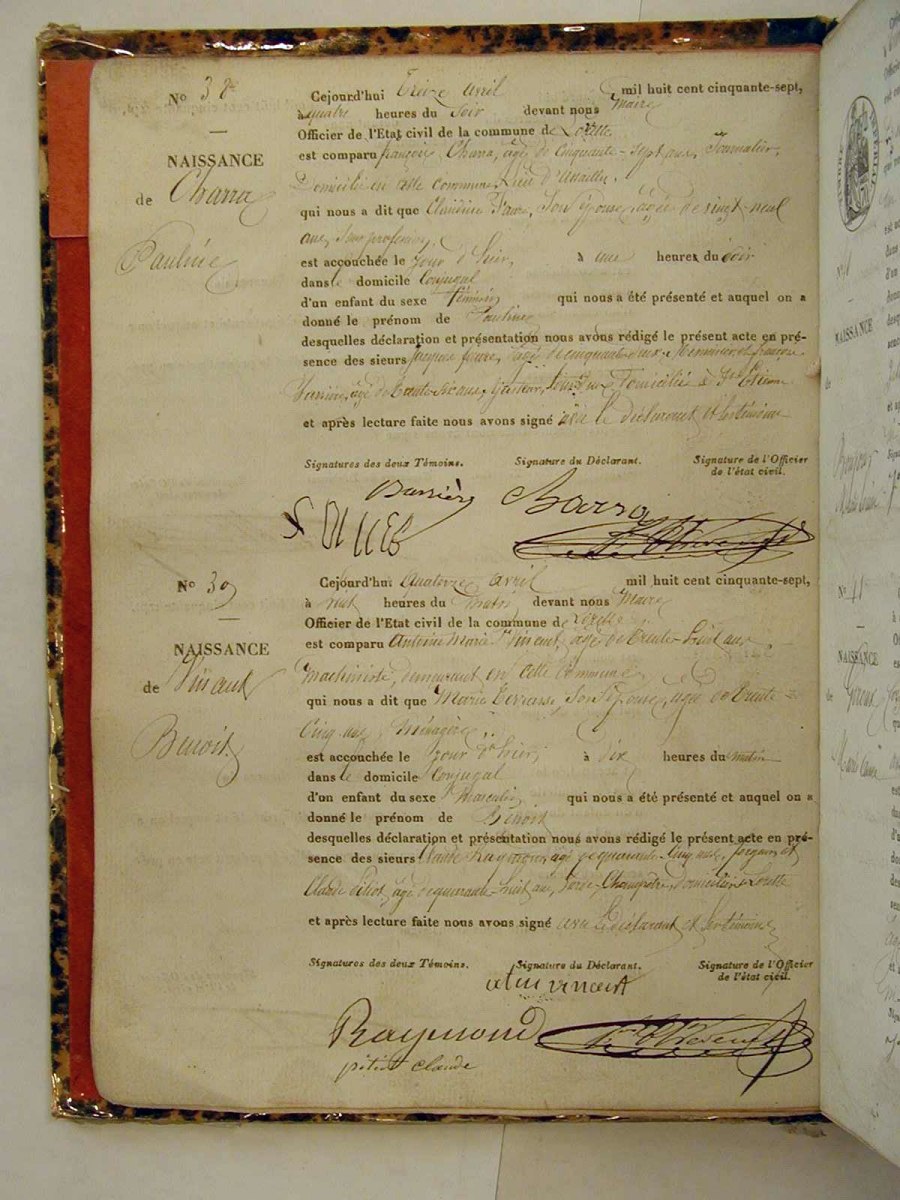 No 38
NAISSANCE
de Charra
Pauline
Cejourd'hui Treize avril mil huit cent cinquante-sept,
à quatre heures du Soir devant nous Maire
Officier de l'Etat civil de la commune de Lorette
est comparu françois Charra, âgé de Cinquante-sept ans, Journalier,
Domicilié en cette commune, lieu d'
qui nous a dit que Claudine Son épouse, âgée de vingt neuf
ans, Sans profession,
est accouchée le jour d'hier, à une heures du Soir
dans le domicile Conjugal
d'un enfant du sexe féminin qui nous a été présenté et auquel on a
donné le prénom de Pauline
desquelles déclaration et présentation nous avons rédigé le présent acte en pré-
sence des sieurs Jacques faure, âgé de cinquante deux et françois
âgé de trente six ans, tous deux Domiciliés à St Etienne
et après lecture faite nous avons signé avec le déclarant et les témoins
Signatures des deux Témoins. Signature du Déclarant. Signature de l'Officier
de l'état civil.
Charra
No 39
NAISSANCE
de Vincent
Benoit
Cejourd'hui Quatorze avril mil huit cent cinquante-sept,
à huit heures du Matin devant nous Maire
Officier de l'Etat civil de la commune de Lorette
est comparu Antoine Marie Vincent, âgé de trente-huit ans
Machiniste, demeurant en cette Commune,
qui nous a dit que Marie Son épouse, âgée de trente-
Cinq ans, Ménagère,
est accouchée le jour d'hier, à Six heures du matin
dans le domicile Conjugal
d'un enfant du sexe Masculin qui nous a été présenté et auquel on a
donné le prénom de Benoit
desquelles déclaration et présentation nous avons rédigé le présent acte en pré-
sence des sieurs Claude Raymond, âgé de quarante-Cinq ans, forgeur, et
Claude Pitiot, âgé de quarante-huit ans, Garde-Champêtre, domiciliés à Lorette
et après lecture faite nous avons signé avec le déclarant et les témoins
Signatures des deux Témoins. Signature du Déclarant. Signature de l'Officier
de l'état civil.
vincent
Raymond
pitiot claude
NAISSANCE
No 41
NAISSANCE
de